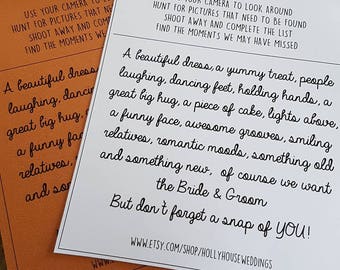 USE YOUR CAMERA TO LOOK AROUND
HUNT FOR PICTURES THAT NEED TO BE FOUND
SHOOT AWAY AND COMPLETE THE LIST
FIND THE MOMENTS WE MAY HAVE MISSED
A beautiful dress, a yummy treat, people
laughing, dancing feet, holding hands, a
great big hug, a piece of cake, lights above,
a funny face, awesome grooves, smiling
relatives, romantic moods, something old
and something new, of course we want
the Bride & Groom
But don't forget a snap of YOU!
WWW.ETSY.COM/SHOP/HOLLYHOUSEWEDDINGS
USE YOUR CAMERA TO
HUNT FOR PICTURES THAT
SHOOT AWAY AND COM
FIND THE MOMENTS WE
A beautiful dress,
laughing, dancing
great big hug, a
a funny face
relatives,
and so
WWW.E